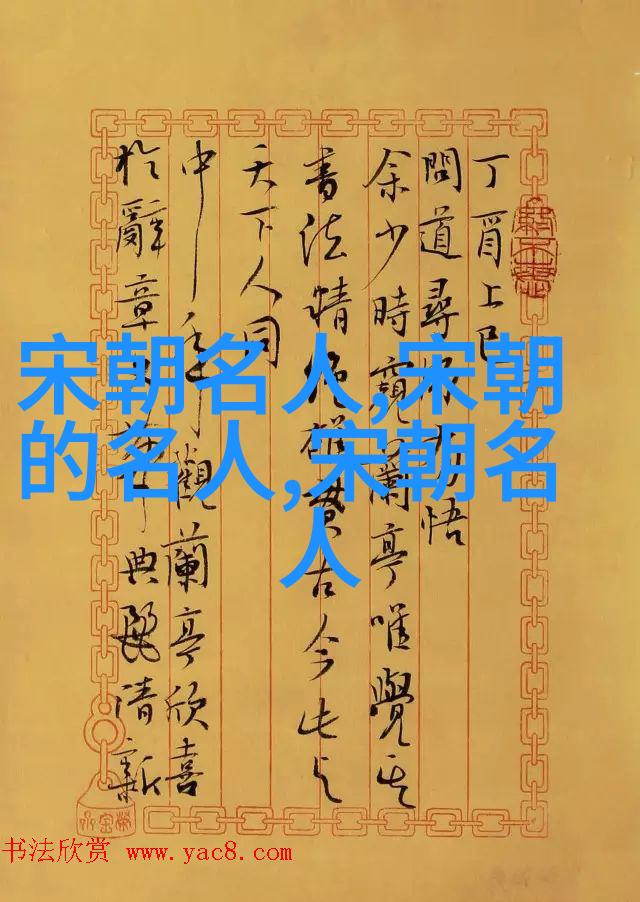 宋朝名人,宋朝
的名人,宋朝名
人
丁酉上巳
問道尋悟
余少時觀蘭亭唯覺其
書法精絕雄貫古今此与
天下人同
中年觀蘭亭欣喜
於辭章典麗清新
书法欣赏 www.yac8.com